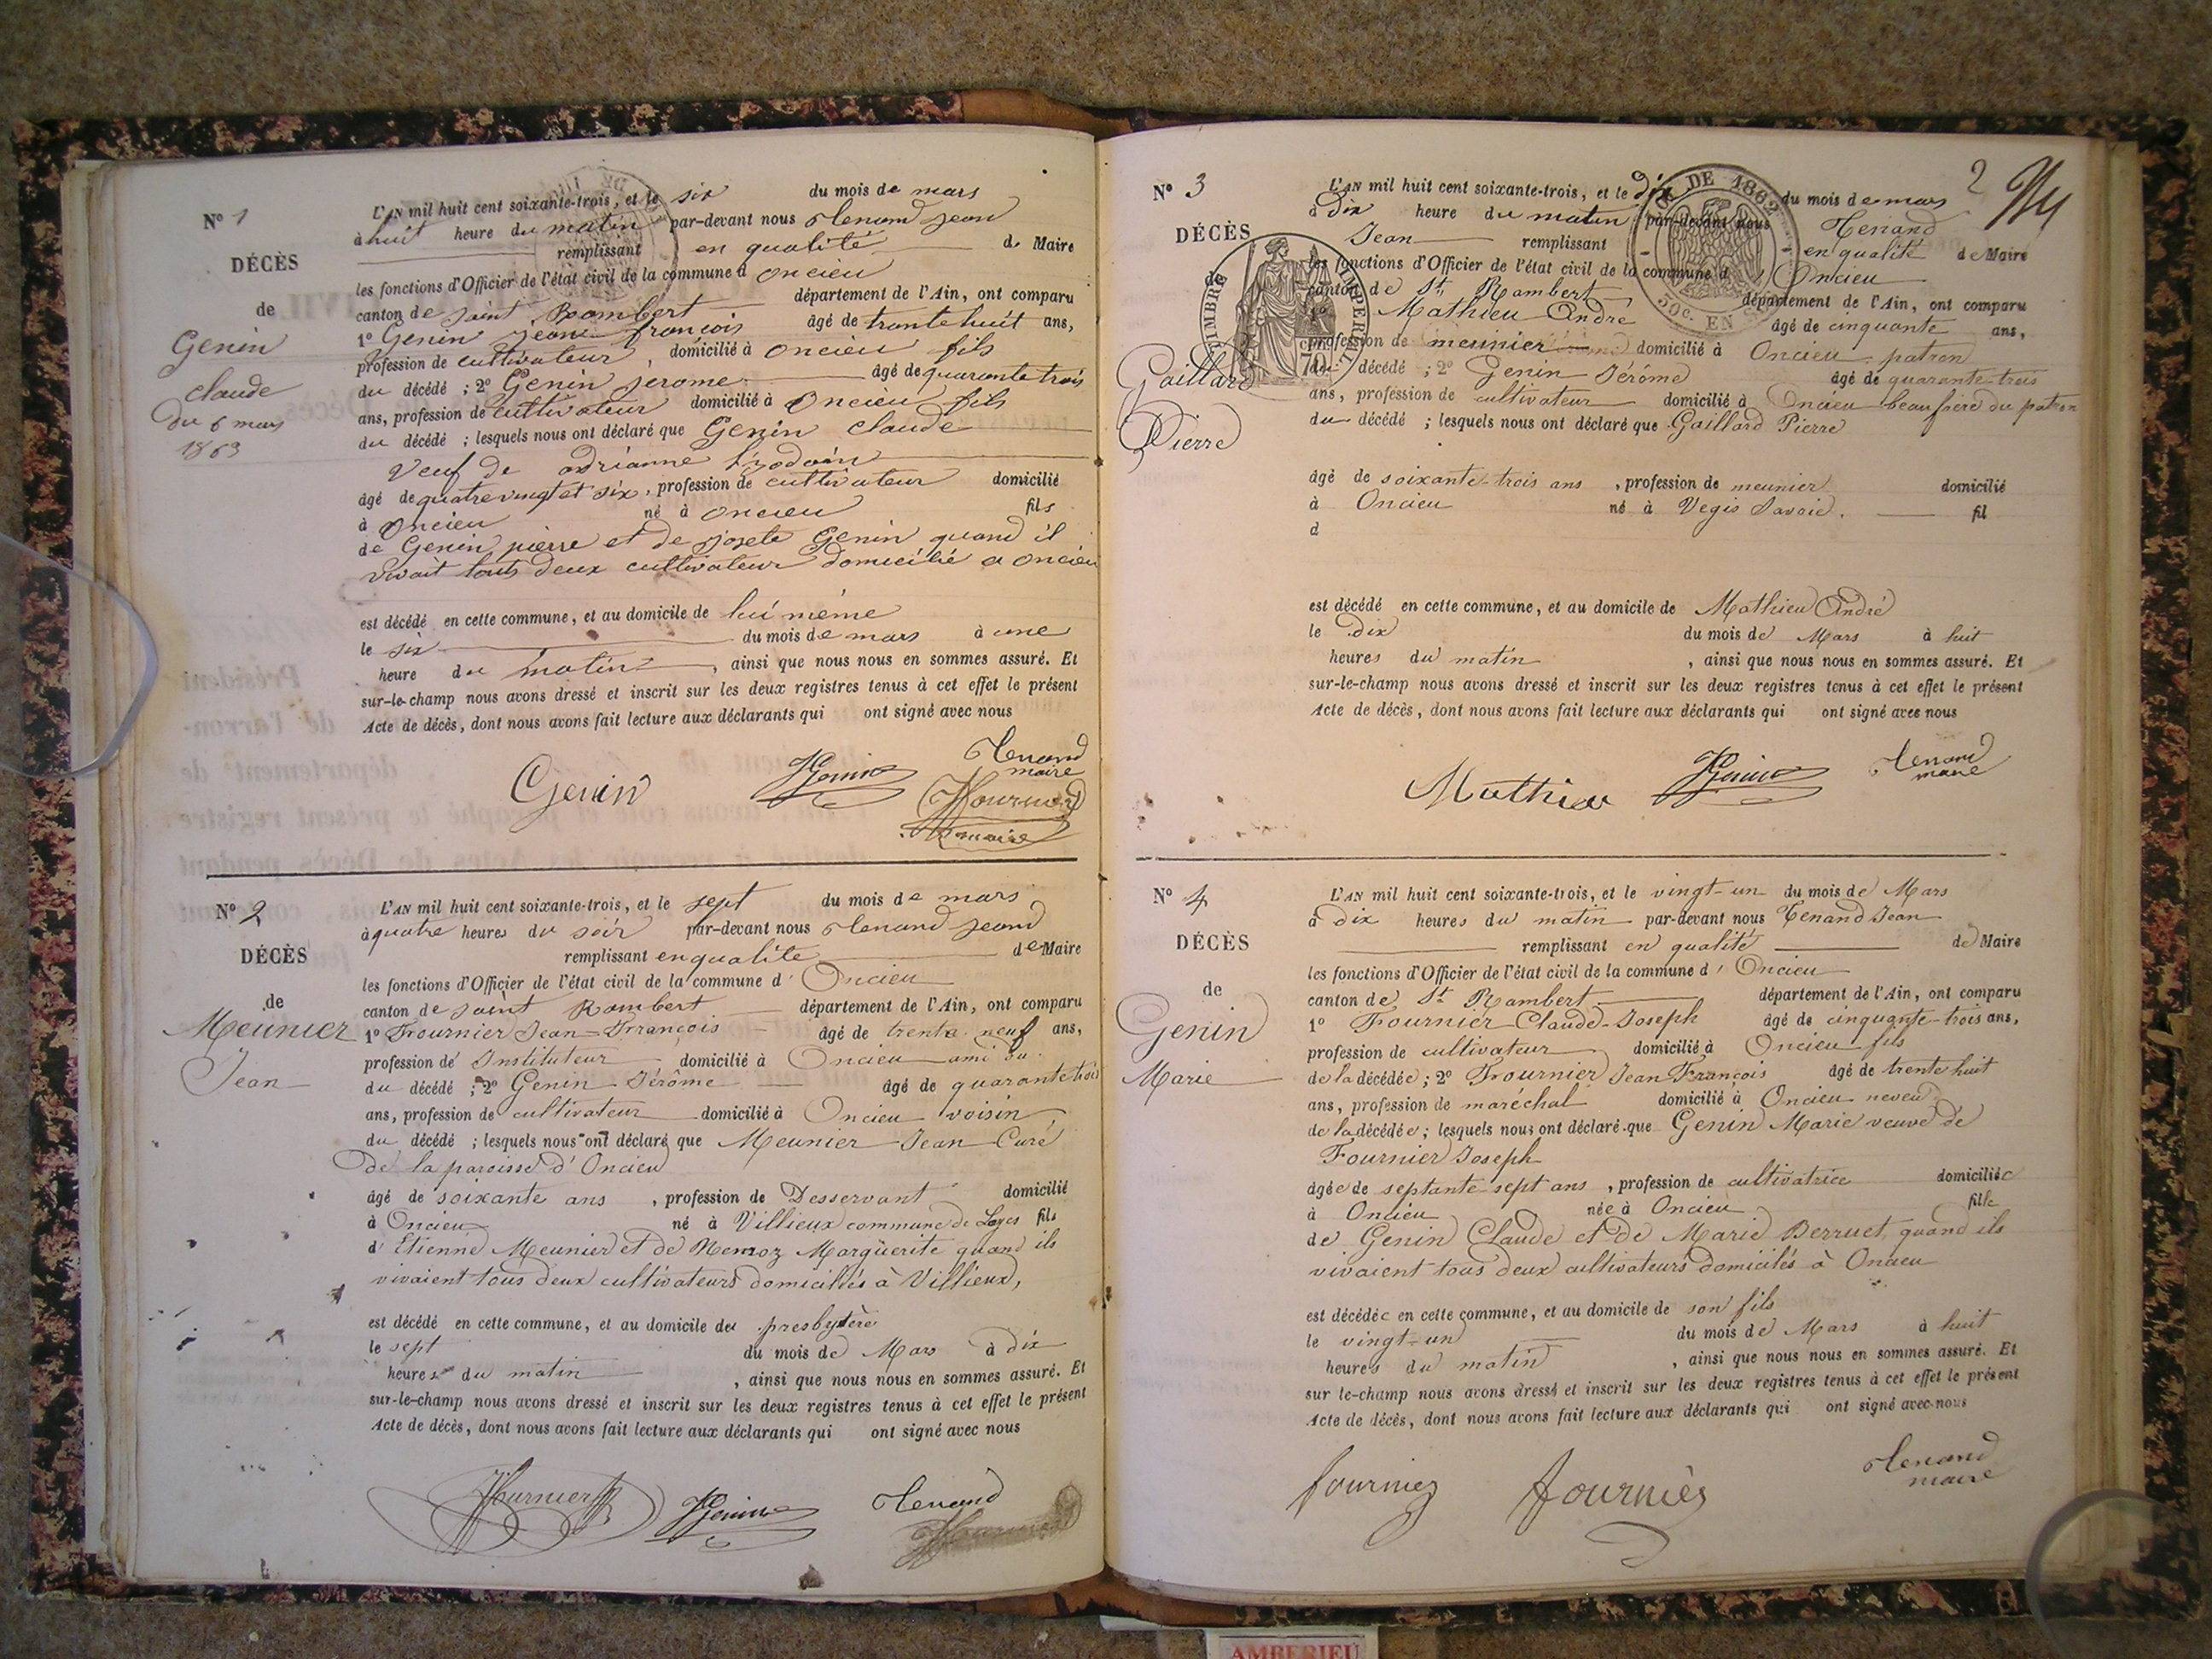 N° 1
DÉCÈS
de
Genin
claude
du 6 mars
1863
L'AN mil huit cent soixante-trois, et le six du mois de mars
à huit heure du matin par-devant nous Tenand jean
remplissant en qualité de Maire
les fonctions d'Officier de l'état civil de la commune d oncieu
canton de saint Rambert département de l'Ain, ont comparu
1° Genin jean françois âgé de trante huit ans,
profession de cultivateur, domicilié à oncieu fils
du décédé ; 2° Genin jerome âgé de quarante trois
ans, profession de cultivateur domicilié à oncieu fils
du décédé ; lesquels nous ont déclaré que Genin claude
veuf de adrianne
âgé de quatre vingt et six, profession de cultivateur domicilié
à oncieu né à oncieu fils
de Genin pierre et de Genin quand il
vivait touts deux cultivateur domicilié a oncieu
est décédé en cette commune, et au domicile de lui même
le six du mois de mars à une
heure du matin, ainsi que nous nous en sommes assuré. Et
sur-le-champ nous avons dressé et inscrit sur les deux registres tenus à cet effet le présent
Acte de décès, dont nous avons fait lecture aux déclarants qui ont signé avec nous
Genin JGenin Tenand
maire
Fournier
N° 2
DÉCÈS
de
Meunier
Jean
L'AN mil huit cent soixante-trois, et le sept du mois de mars
à quatre heures du soir par-devant nous Tenand jean
remplissant en qualité de Maire
les fonctions d'Officier de l'état civil de la commune d' Oncieu
canton de saint Rambert département de l'Ain, ont comparu
1° Fournier Jean-François âgé de trente neuf ans,
profession de Instituteur domicilié à Oncieu ami du
du décédé ; 2° Genin Jérôme âgé de quarante trois
ans, profession de cultivateur domicilié à Oncieu voisin
du décédé ; lesquels nous ont déclaré que Meunier Jean Curé
de la paroisse d' Oncieu
âgé de soixante ans, profession de Desservant domicilié
à Oncieu né à Villieux commune de Loyes fils
d' Etienne Meunier et de Nemoz Margüerite quand ils
vivaient tous deux cultivateurs domiciliés à Villieux,
est décédé en cette commune, et au domicile du presbytère
le sept du mois de Mars à dix
heures du matin, ainsi que nous nous en sommes assuré. Et
sur-le-champ nous avons dressé et inscrit sur les deux registres tenus à cet effet le présent
Acte de décès, dont nous avons fait lecture aux déclarants qui ont signé avec nous
Fournier JGenin Tenand
2
N° 3
DÉCÈS
de
Gaillard
Pierre
TIMBRE IMPERIAL
DE 1862
50c. EN
L'AN mil huit cent soixante-trois, et le dix du mois de mars
à Dix heure du matin par-devant nous Tenand
Jean remplissant en qualité de Maire
les fonctions d'Officier de l'état civil de la commune d' Oncieu
canton de St Rambert département de l'Ain, ont comparu
1° Mathieu André âgé de cinquante ans,
profession de meunier domicilié à Oncieu patron
du décédé ; 2° Genin Jérôme âgé de quarante-trois
ans, profession de cultivateur domicilié à Oncieu beau frère du patron
du décédé ; lesquels nous ont déclaré que Gaillard Pierre
âgé de soixante-trois ans, profession de meunier domicilié
à Oncieu né à Vegis Savoie. fil
d
est décédé en cette commune, et au domicile de Mathieu André
le dix du mois de Mars à huit
heures du matin, ainsi que nous nous en sommes assuré. Et
sur-le-champ nous avons dressé et inscrit sur les deux registres tenus à cet effet le présent
Acte de décès, dont nous avons fait lecture aux déclarants qui ont signé avec nous
Mathieu JGenin Tenand
maire
N° 4
DÉCÈS
de
Genin
Marie
L'AN mil huit cent soixante-trois, et le vingt-un du mois de Mars
à dix heures du matin par-devant nous Tenand Jean
remplissant en qualité de Maire
les fonctions d'Officier de l'état civil de la commune d' Oncieu
canton de St Rambert département de l'Ain, ont comparu
1° Fournier Claude-Joseph âgé de cinquante-trois ans,
profession de cultivateur domicilié à Oncieu fils
de la décédée ; 2° Fournier Jean François âgé de trente huit
ans, profession de maréchal domicilié à Oncieu neveu
de la décédée ; lesquels nous ont déclaré que Genin Marie veuve de
Fournier Joseph
âgée de septante-sept ans, profession de cultivatrice domiciliée
à Oncieu née à Oncieu fille
de Genin Claude et de Marie Berruet, quand ils
vivaient tous deux cultivateurs domiciliés à Oncieu
est décédée en cette commune, et au domicile de son fils
le vingt-un du mois de Mars à huit
heures du matin, ainsi que nous nous en sommes assuré. Et
sur le-champ nous avons dressé et inscrit sur les deux registres tenus à cet effet le présent
Acte de décès, dont nous avons fait lecture aux déclarants qui ont signé avec nous
fournier fournièr Tenand
maire
AMBERIEU